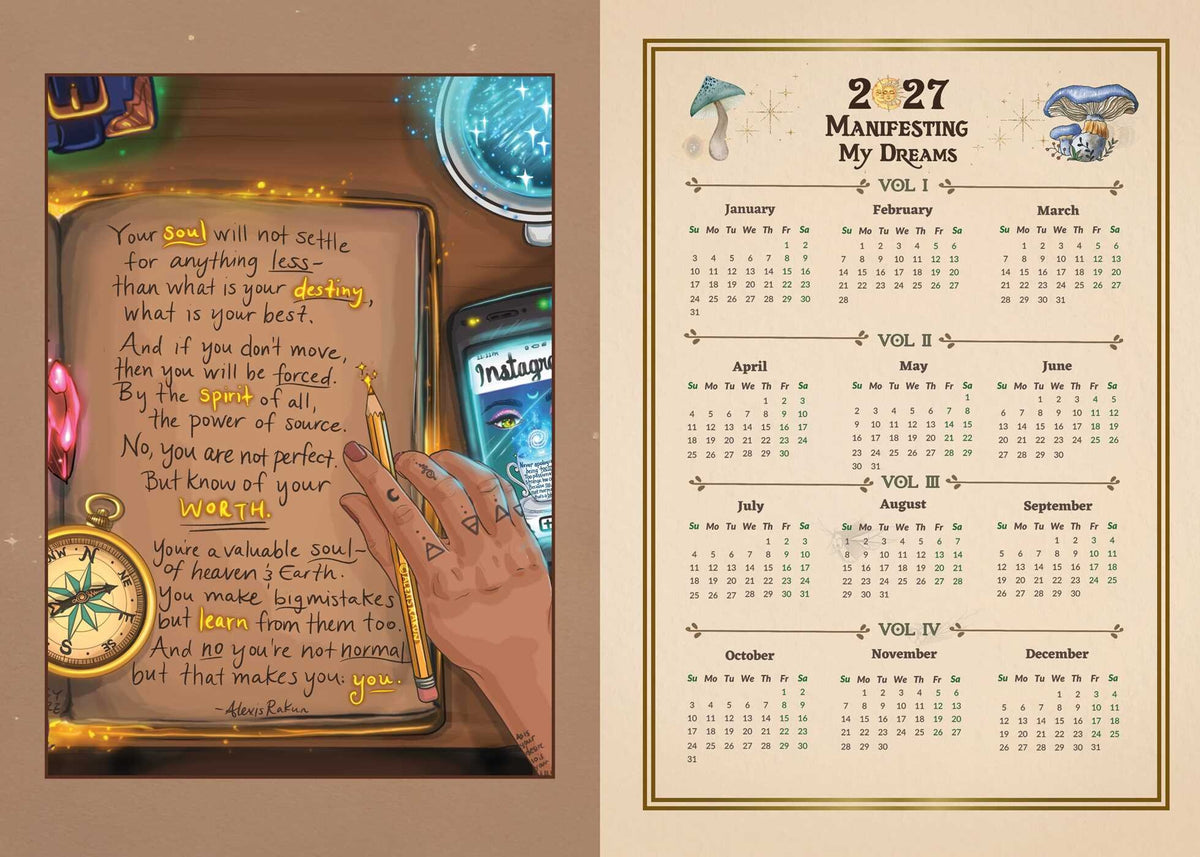 Your soul will not settle
for anything less-
than what is your destiny,
what is your best.
And if you don't move,
then you will be forced.
By the spirit of all,
the power of source.
No, you are not perfect.
But know of your
WORTH.
You're a valuable soul-
of heaven & Earth.
You make big mistakes
but learn from them too.
And no you're not normal
but that makes you: you.
-Alexis Rakun
11:11am
Instagra
NW N NE
E
SE
S
as is
your
desire
so is
your
2027
Manifesting
My Dreams
VOL I
January
Su Mo Tu We Th Fr Sa
1 2
3 4 5 6 7 8 9
10 11 12 13 14 15 16
17 18 19 20 21 22 23
24 25 26 27 28 29 30
31
February
Su Mo Tu We Th Fr Sa
1 2 3 4 5 6
7 8 9 10 11 12 13
14 15 16 17 18 19 20
21 22 23 24 25 26 27
28
March
Su Mo Tu We Th Fr Sa
1 2 3 4 5 6
7 8 9 10 11 12 13
14 15 16 17 18 19 20
21 22 23 24 25 26 27
28 29 30 31
VOL II
April
Su Mo Tu We Th Fr Sa
1 2 3
4 5 6 7 8 9 10
11 12 13 14 15 16 17
18 19 20 21 22 23 24
25 26 27 28 29 30
May
Su Mo Tu We Th Fr Sa
1
2 3 4 5 6 7 8
9 10 11 12 13 14 15
16 17 18 19 20 21 22
23 24 25 26 27 28 29
30 31
June
Su Mo Tu We Th Fr Sa
1 2 3 4 5
6 7 8 9 10 11 12
13 14 15 16 17 18 19
20 21 22 23 24 25 26
27 28 29 30
VOL III
July
Su Mo Tu We Th Fr Sa
1 2 3
4 5 6 7 8 9 10
11 12 13 14 15 16 17
18 19 20 21 22 23 24
25 26 27 28 29 30 31
August
Su Mo Tu We Th Fr Sa
1 2 3 4 5 6 7
8 9 10 11 12 13 14
15 16 17 18 19 20 21
22 23 24 25 26 27 28
29 30 31
September
Su Mo Tu We Th Fr Sa
1 2 3 4
5 6 7 8 9 10 11
12 13 14 15 16 17 18
19 20 21 22 23 24 25
26 27 28 29 30
VOL IV
October
Su Mo Tu We Th Fr Sa
1 2
3 4 5 6 7 8 9
10 11 12 13 14 15 16
17 18 19 20 21 22 23
24 25 26 27 28 29 30
31
November
Su Mo Tu We Th Fr Sa
1 2 3 4 5 6
7 8 9 10 11 12 13
14 15 16 17 18 19 20
21 22 23 24 25 26 27
28 29 30
December
Su Mo Tu We Th Fr Sa
1 2 3 4
5 6 7 8 9 10 11
12 13 14 15 16 17 18
19 20 21 22 23 24 25
26 27 28 29 30 31